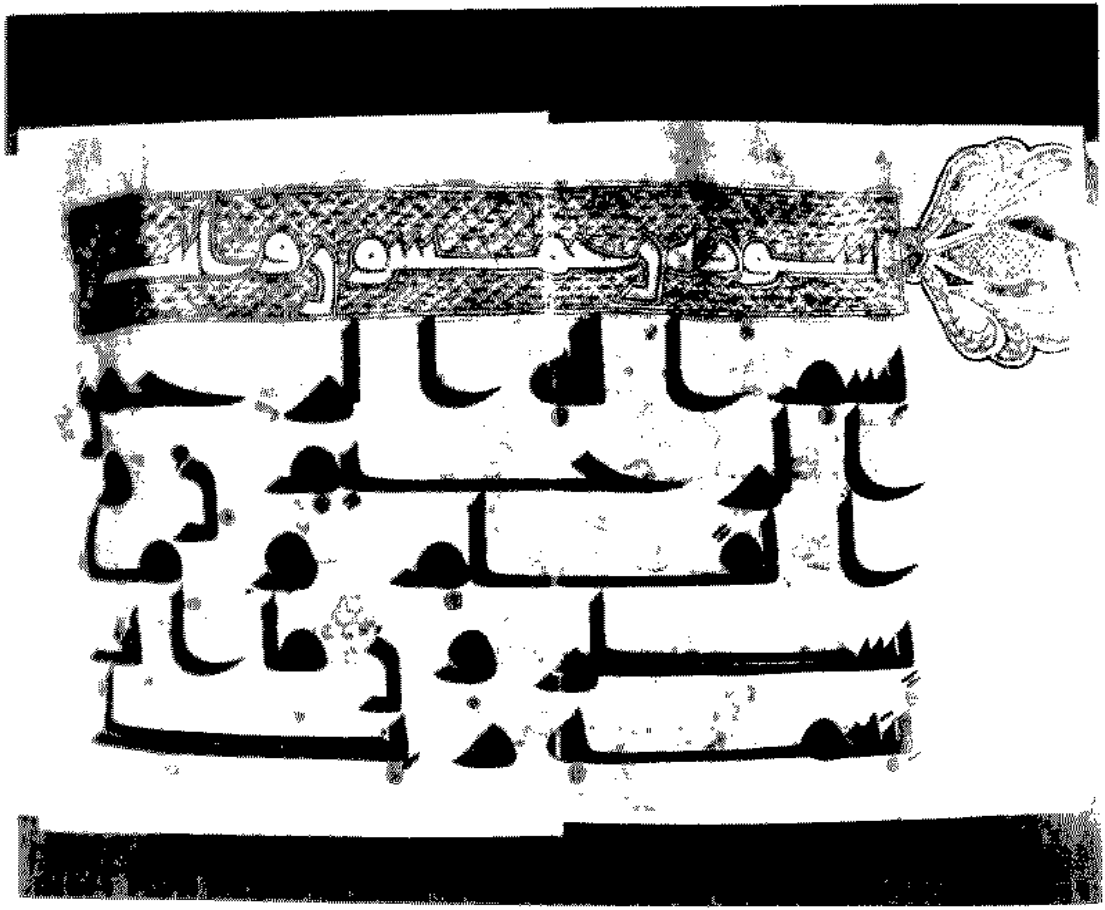 خمسون
بسم الله الرحمن
الرحيم ن و
القلم وما
يسطرون ما انت
بنعمة ربك